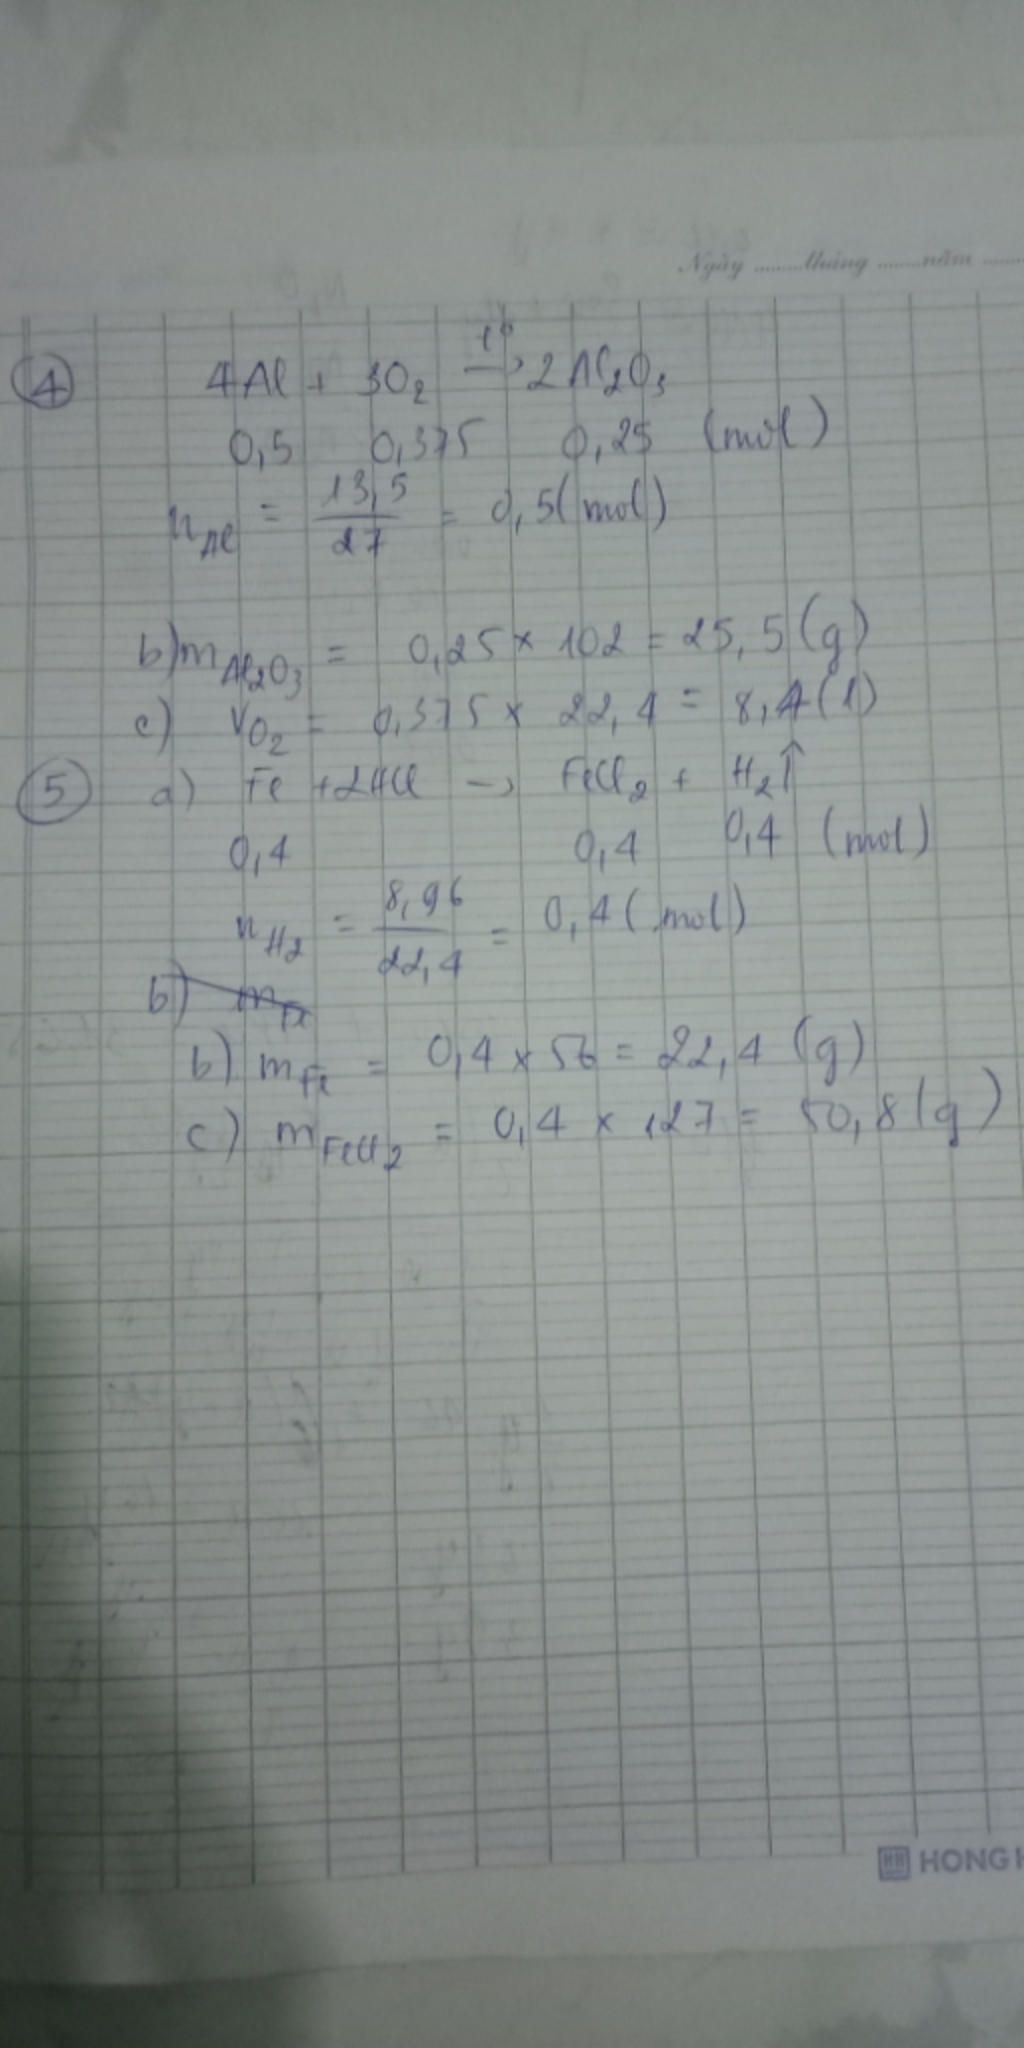 Ngày ........ tháng ....... năm ......
4 4Al + 3O₂ t° → 2Al₂O₃
0,5 0,375 0,25 (mol)
n Al = 13,5 / 27 = 0,5 (mol)
b) m Al₂O₃ = 0,25 × 102 = 25,5 (g)
c) V O₂ = 0,375 × 22,4 = 8,4 (l)
5 a) Fe + 2HCl → FeCl₂ + H₂↑
0,4 0,4 0,4 (mol)
n H₂ = 8,96 / 22,4 = 0,4 (mol)
b) m Fe
b) m Fe = 0,4 × 56 = 22,4 (g)
c) m FeCl₂ = 0,4 × 127 = 50,8 (g)
HH HONG H